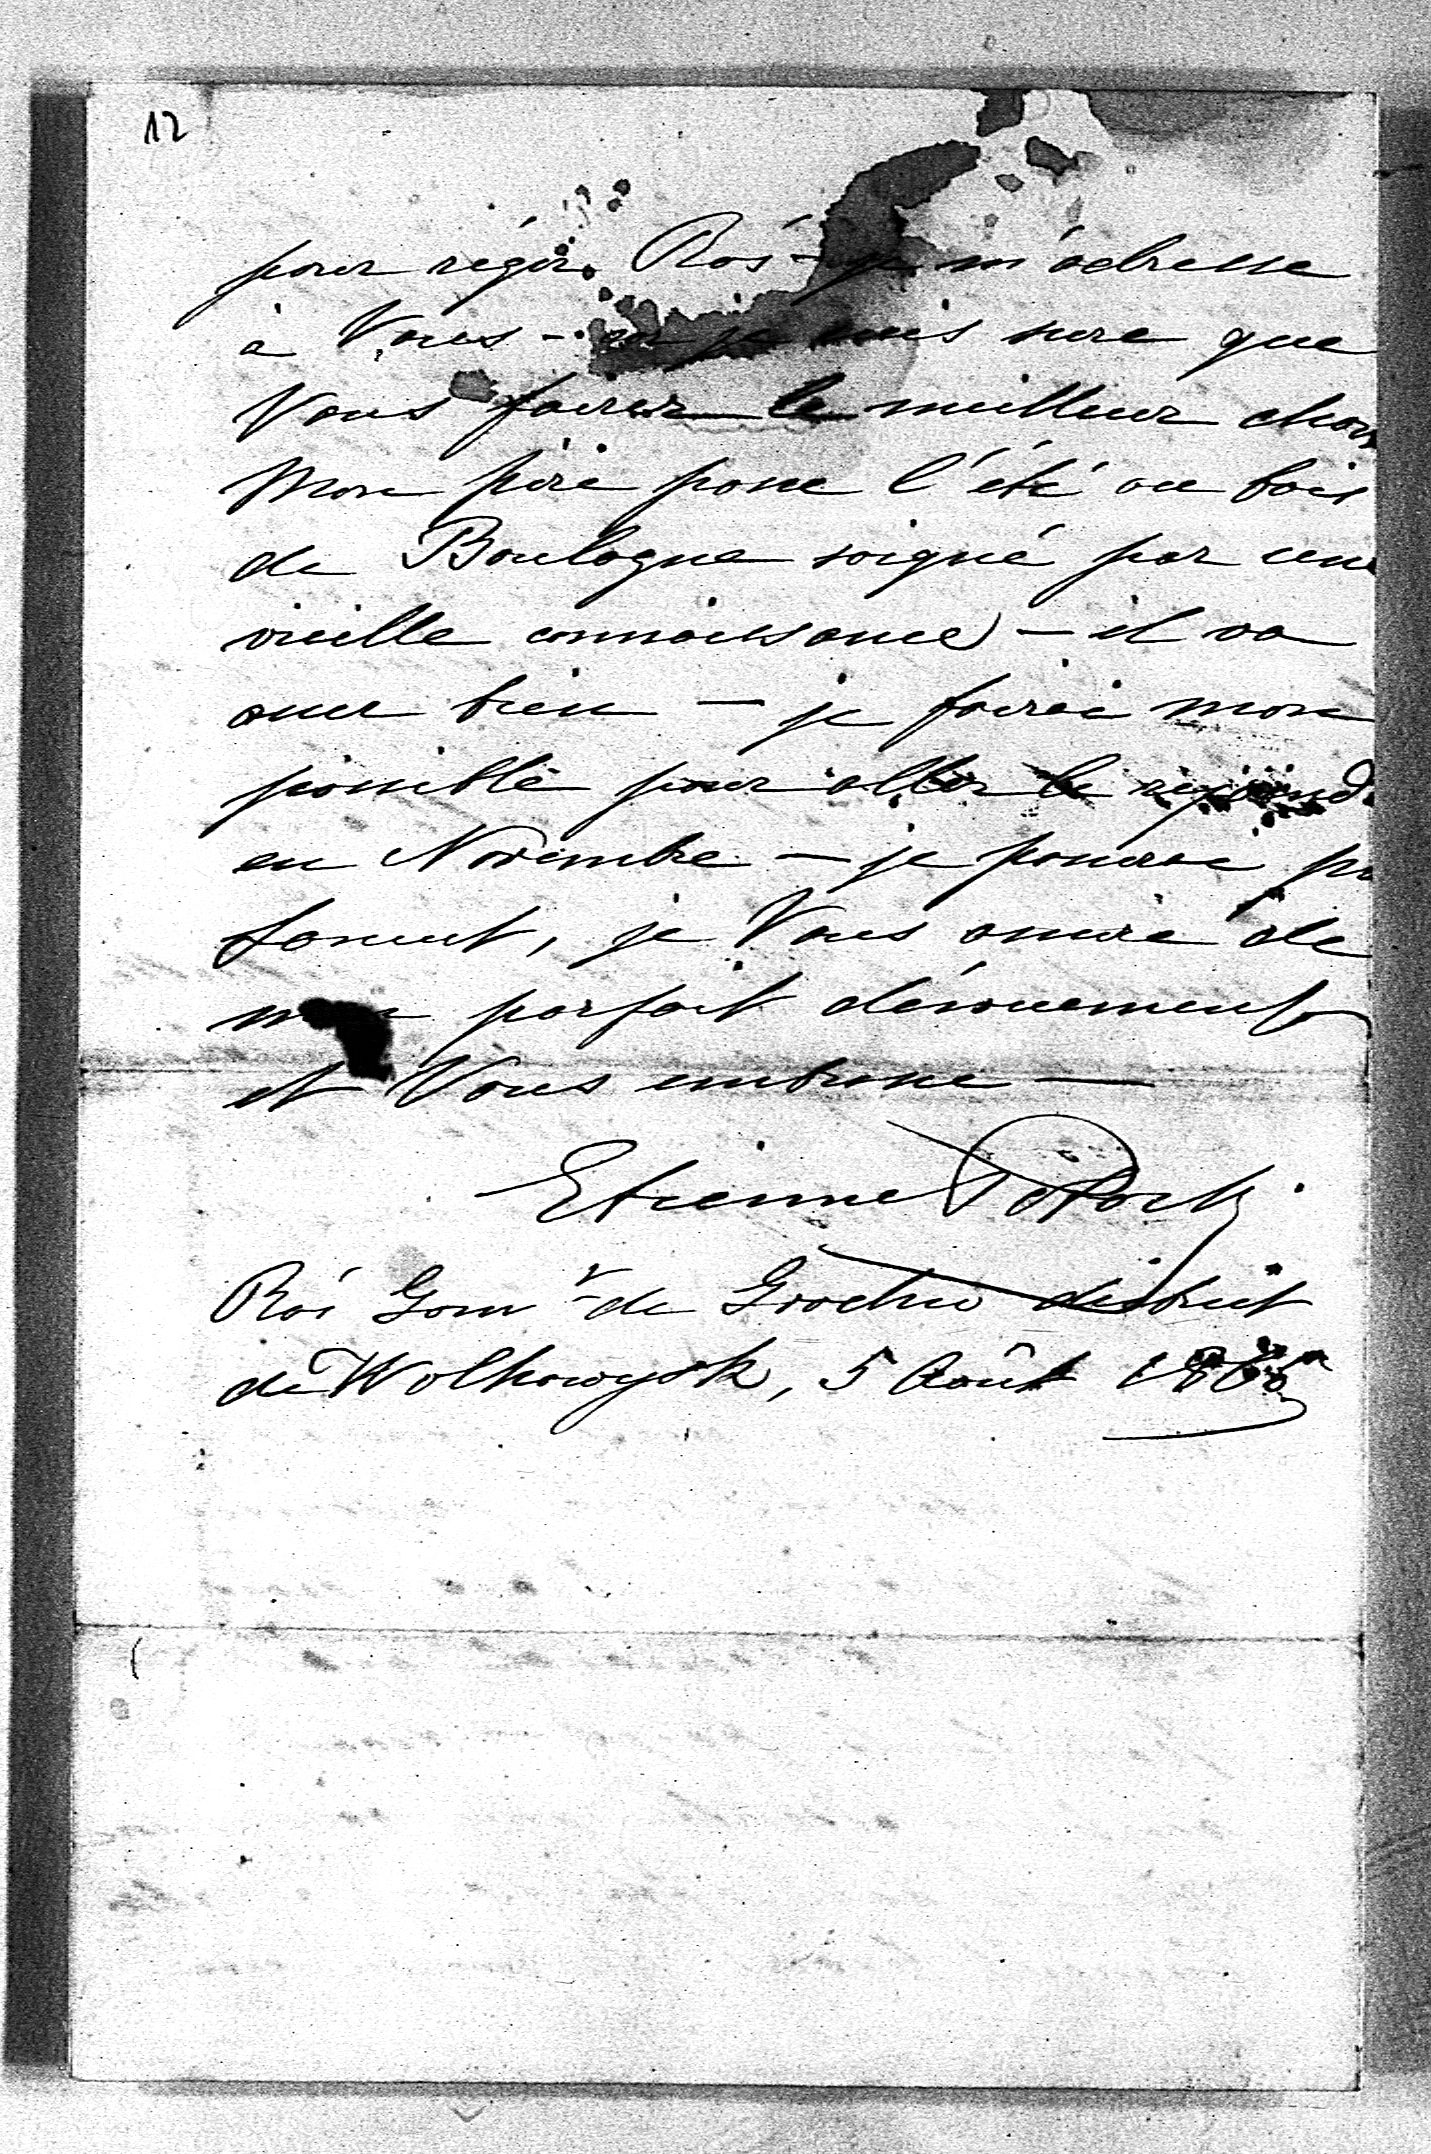 12
pour régir Roś - je m'adresse
à Vous - car je suis sure que
Vous fairez le meilleur choix
Mon père passe l'été au bois
de Boulogne soigné par une
vieille connaissance - il va
assez bien - je fairai mon
possible pour aller le rejoind
en Novembre - je pourrai
, je Vous assure de
mon parfait dévouement
et Vous embrasse -
Etienne Potocki
Roś Gouvr de Grodno district
de Wolkowysk, 5 Août